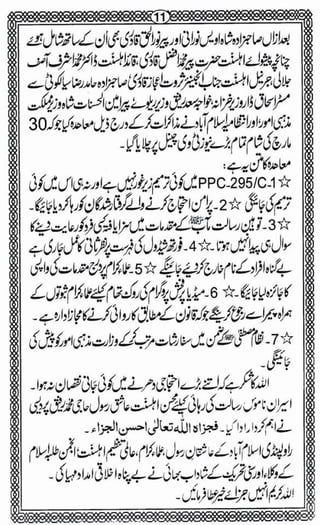 11
بعد ازاں صاحبزادہ شاہ اویس نورانی اور پیر نور الحق قادری بھی ان کے ساتھ شامل ہوئے
چنانچہ پیشوائے اہلسنت حضرت پیر محمد افضل قادری، قائد اہلسنت ڈاکٹر محمد اشرف آصف
جلالی، جرنیل اہلسنت جناب انجینئر ثروت اعجاز قادری، صاحبزادہ حامد رضا سیالکوٹی سے
مسٹر اسحاق ڈار وزیر خزانہ، خواجہ سعد رفیق وزیر ریلوے، پیر امین الحسنات شاہ وزیر مملکت
مذہبی امور، اور انتظامیہ اسلام آباد نے مذاکرات کر کے درج ذیل معاہدہ کیا جو کہ 30
مارچ کی شام تمام بڑے نیوز ٹی وی چینل پر چلایا گیا۔
معاہدہ کا متن یہ ہے:
☆1- PPC-295/C میں کوئی ترمیم زیر غور نہیں ہے اور نہ ہی اس میں کوئی
ترمیم کی جائیگی ☆2- پر امن احتجاج کرنے والے گرفتار شدگان کو رہا کر دیا جائیگا۔
☆3- توہین رسالت مآب ﷺ کے مقدمات میں سزا یافتہ کسی فرد کو رعایت دینے کا
سوال ہی پیدا نہیں ہوتا۔ ☆4- فورتھ شیڈول کی فہرست پر نظر ثانی کا عمل جاری ہے
بے گناہ افراد کے نام خارج کر دیے جائیں گے ☆5- علماء کرام پر درج مقدمات کی واپسی
کا جائزہ لیا جائیگا۔ ☆6- میڈیا پر فحش پروگرام کی روک تھام کیلئے علماء کرام ثبوتوں کے
ہمراہ پیمرا سے رجوع کریں گے جو کہ قانون کے مطابق کاروائی کرنے کا مجاز ادارہ ہے۔
☆7- نظام مصطفی ﷺ کے ضمن میں سفارشات مرتب کر کے وزارت مذہبی امور کو پیش کی
جائیں گی۔
اللہ کا شکر ہے کہ اتنے بڑے احتجاجی دھرنے میں کوئی جانی نقصان نہ ہوا۔
اسیران ناموس رسالت کی رہائی کیلئے محسن اہلسنت عاشق رسول حاجی محمد رفیق پردیسی
نے اہم کردار ادا کیا۔ فجزاہ اللہ تعالٰی احسن الجزاء۔
راولپنڈی اسلام آباد کے عاشقان رسول علماء کرام، عالمی تنظیم اہلسنت، انجمن طلباء اسلام
کے وکلاء اور سنی تحریک کے شاداب بھائی نے بے پناہ اخلاقی امداد مہیا کی۔
اللہ کریم انہیں جزائے خیر عطا فرمائیں۔